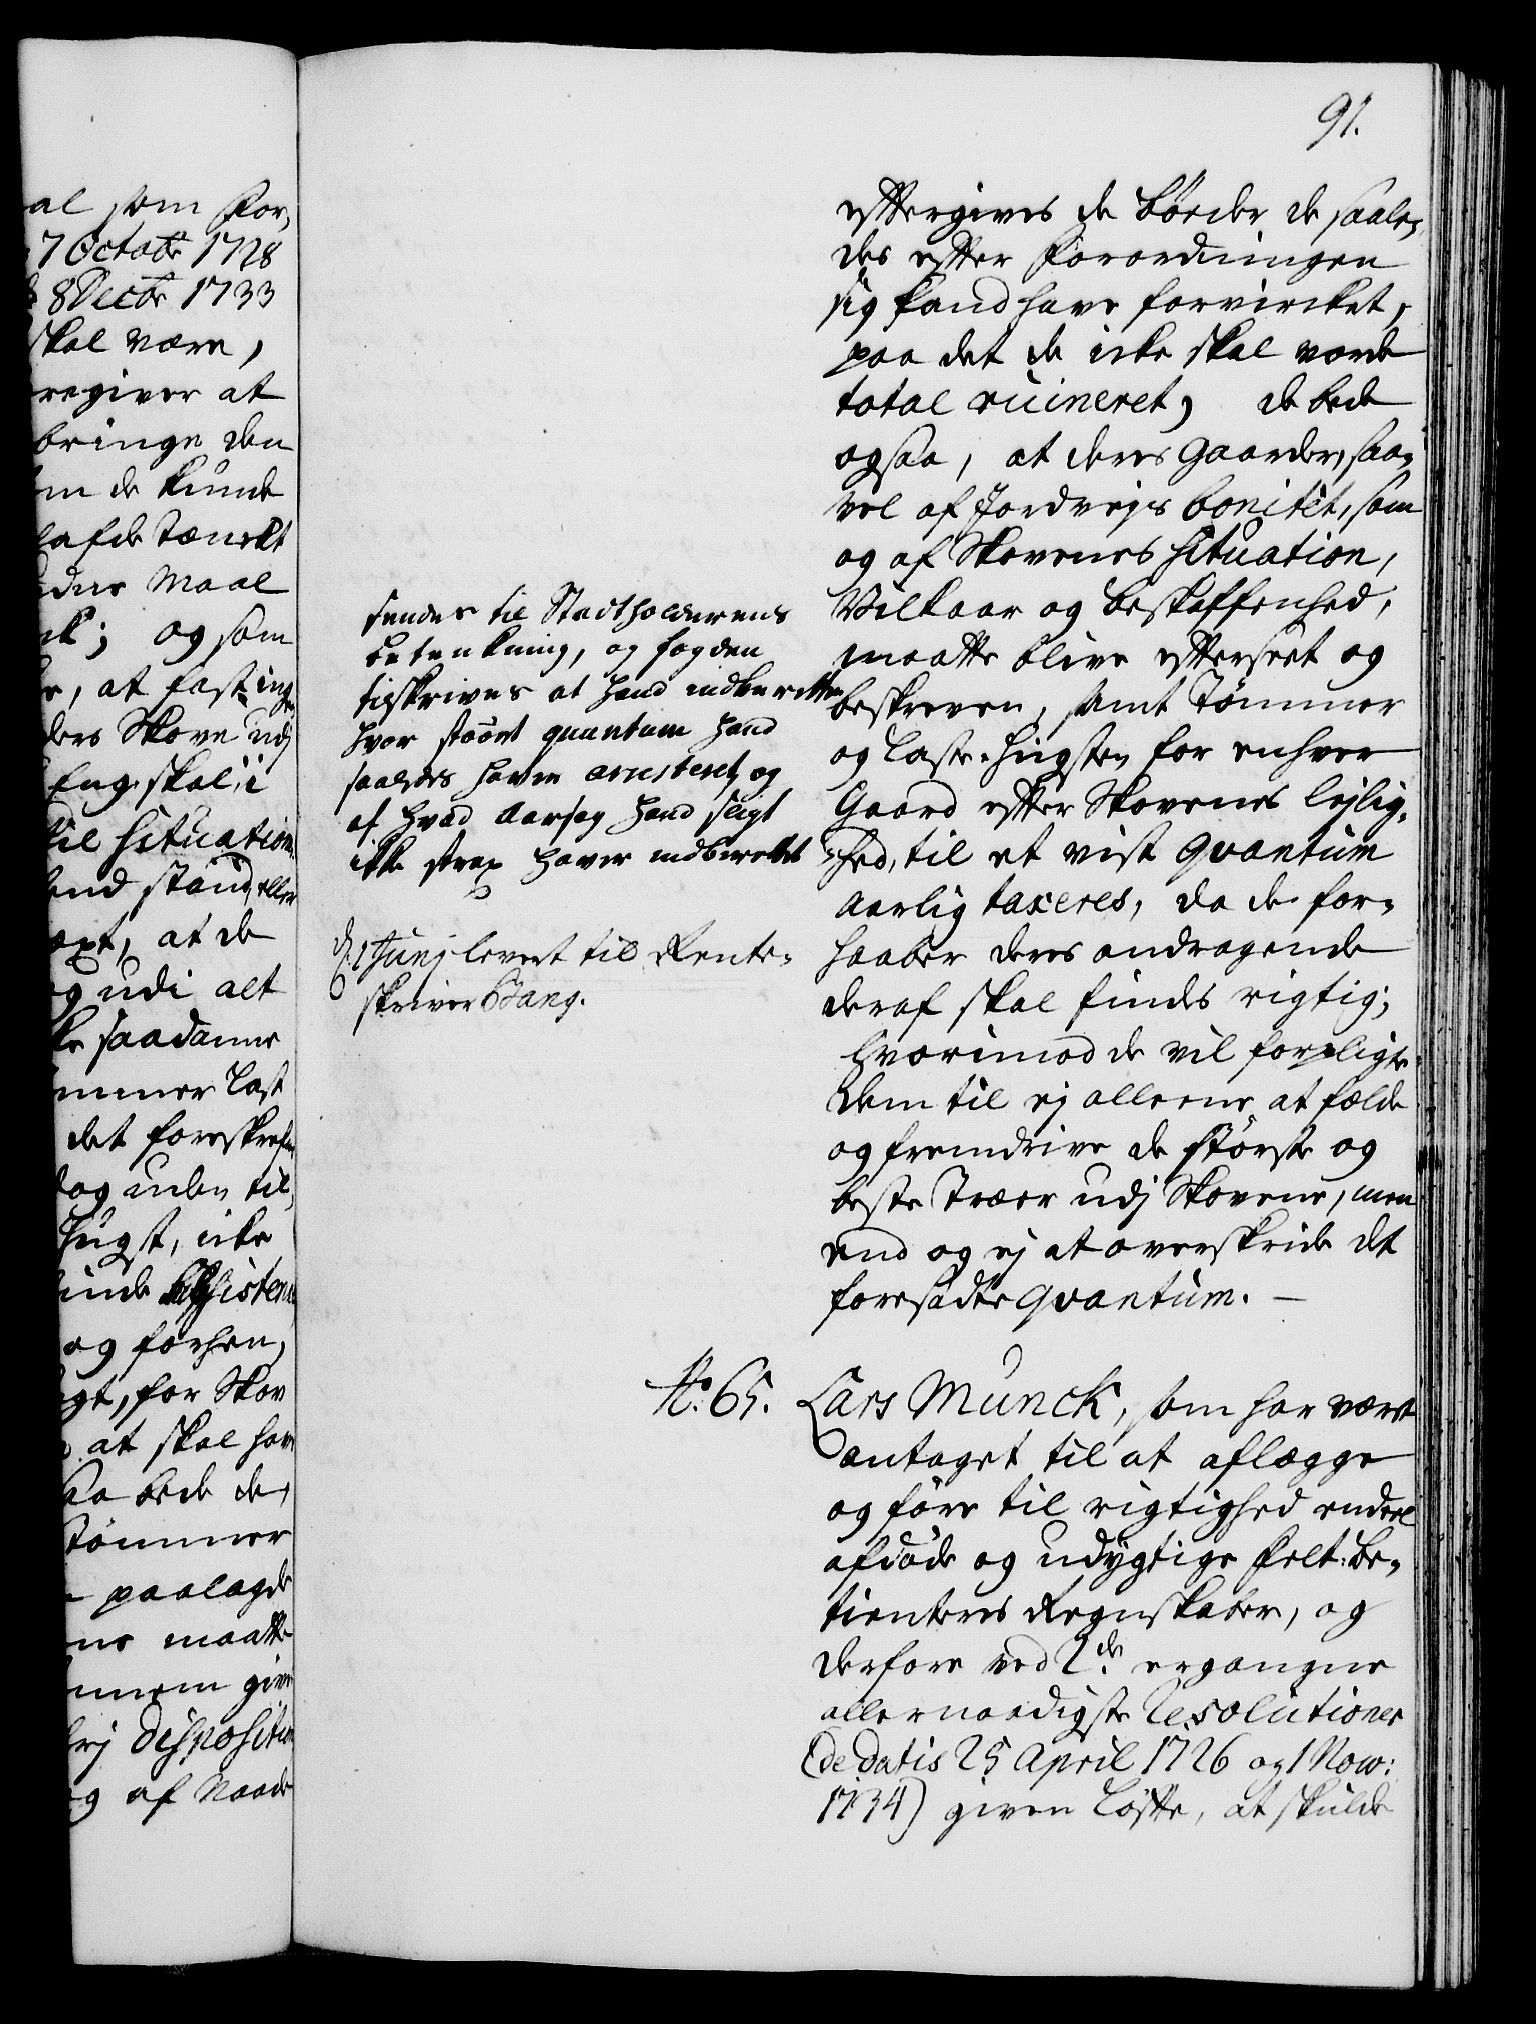 91.
al som For,
7 Octobr 1728
8 Decbr 1733
skal være,
regiver at
bringe den
m de kunde
afde Tænckt
dus Maal
ck; og som
e, at fast ing
ders Skove udj
Eng skal, i
til Situation
end stand, eller
oxt, at de
g udi alt
ke saadanne
mmer last
det foreskrefn
og uden til,
Hugst, icke
inde Assistence
og forhen,
gt, for Skov
at skal have
saa bede de,
Tømmer
paalagde
ne maatte
nnem give
frj Disposition
g af Naade
eftergives de bøder de saale,
des efter Forordningen
sig kand have forvircket,
paa det de icke skal vorde
total ruineret, de bede
ogsaa, at deres Gaarder, saa,
vel af Jordvejs bonitet, som
og af Skovenes Situation,
Vilkaar og beskaffenhed,
maatte blive efterseet og
beskreven, samt Tømmer
og Laste-Hugsten for enhver
Gaard efter Skovenes lejlig,
hed, til et vist Qvantum
Aarlig taxeres, da de for,
haaber deres andragende
deraf skal findes rigtig;
hvorimod de vil forpligte
dem til ej alleene at fælde
og fremdrive de største og
beste Træer udj Skovene, men
end og ej at overskride det
foresadte Qvantum. —
sendes til Stadtholderens
betenkning, og fogden
tilskrives at Hand indberetter
hvor stoort quantum Hand
saaledes haver arresteret, og
af hvad Aarsag Hand sligt
ikke strax haver indberettet
d. 1 Junj levert til Rente-
skriver Bang.
No. 65. Lars Munck, som har været
antaget til at aflægge
og føre til rigtighed endeel
afdøde og udygtige Felt-Be,
tienteres Regnskaber, og
derfore ved 2de ergangne
allernaadigste Resolutioner
(de datis 25 April 1726 og 1 Nov:
1734) given Løfte, at skulde